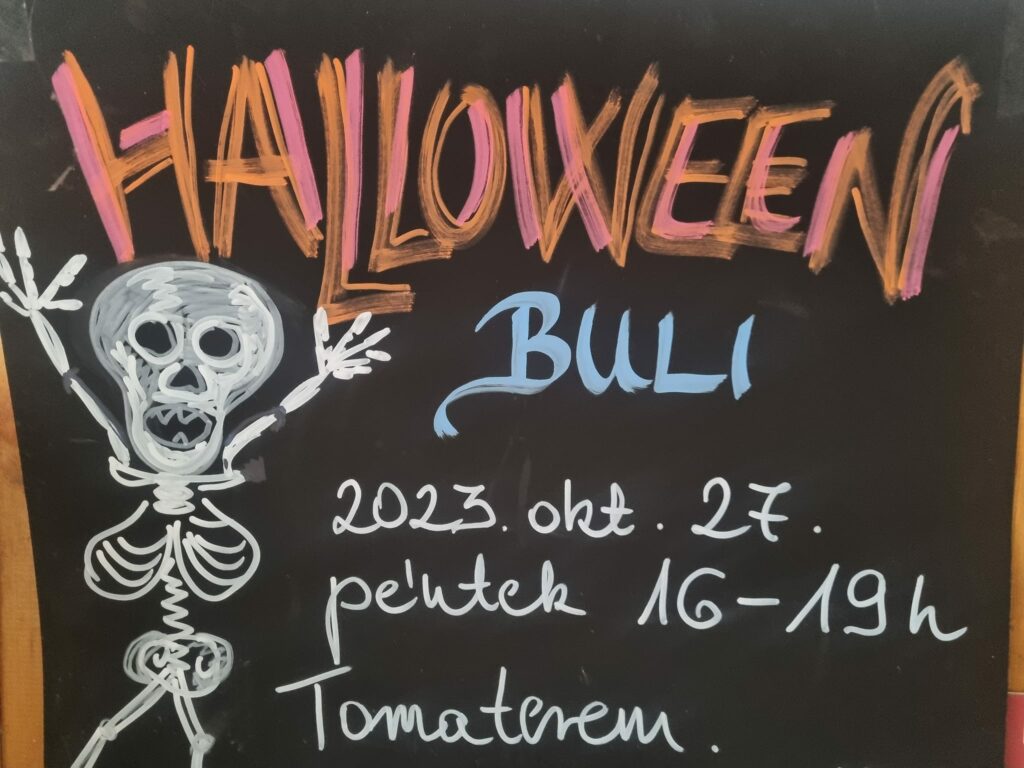 HALLOWEEN
BULI
2023. okt. 27.
péntek 16-19h
Tornaterem.